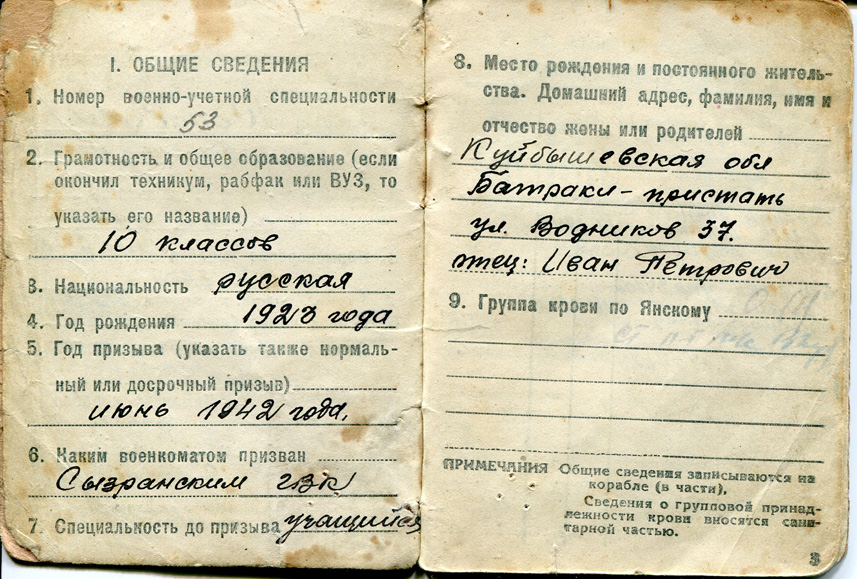 I. ОБЩИЕ СВЕДЕНИЯ
1. Номер военно-учетной специальности
53
2. Грамотность и общее образование (если
окончил техникум, рабфак или ВУЗ, то
указать его название)
10 классов
3. Национальность русская
4. Год рождения 1923 года
5. Год призыва (указать также нормаль-
ный или досрочный призыв)
июнь 1942 года,
6. Каким военкоматом призван
Сызранским гвк
7. Специальность до призыва учащийся
8. Место рождения и постоянного житель-
ства. Домашний адрес, фамилия, имя и
отчество жены или родителей
Куйбышевская обл
Батраки - пристать
ул. Водников 37.
отец: Иван Петрович
9. Группа крови по Янскому
ПРИМЕЧАНИЯ Общие сведения записываются на
корабле (в части).
Сведения о групповой принад-
лежности крови вносятся сани-
тарной частью.
3